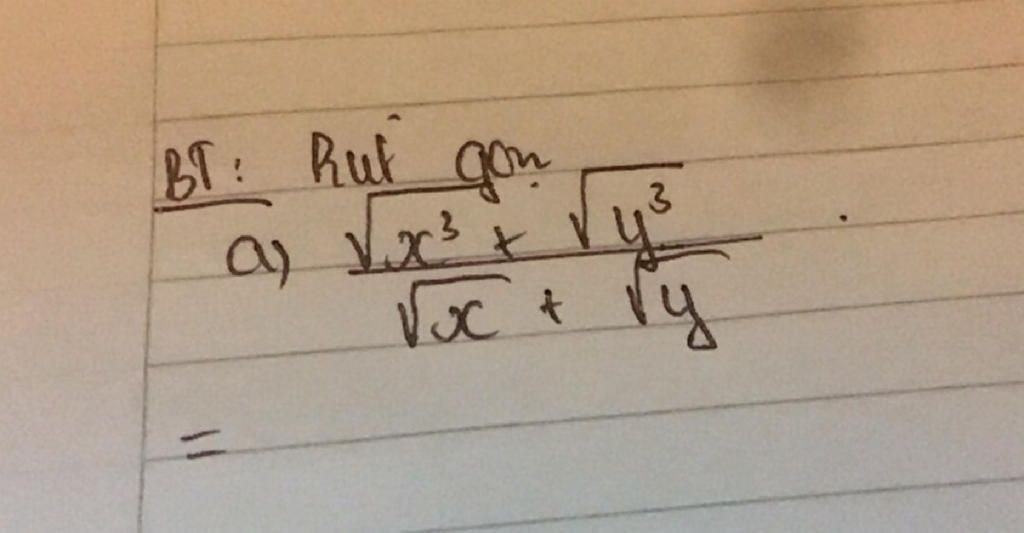 BT: Rút gọn
a) \frac{\sqrt{x^3} + \sqrt{y^3}}{\sqrt{x} + \sqrt{y}} .
=